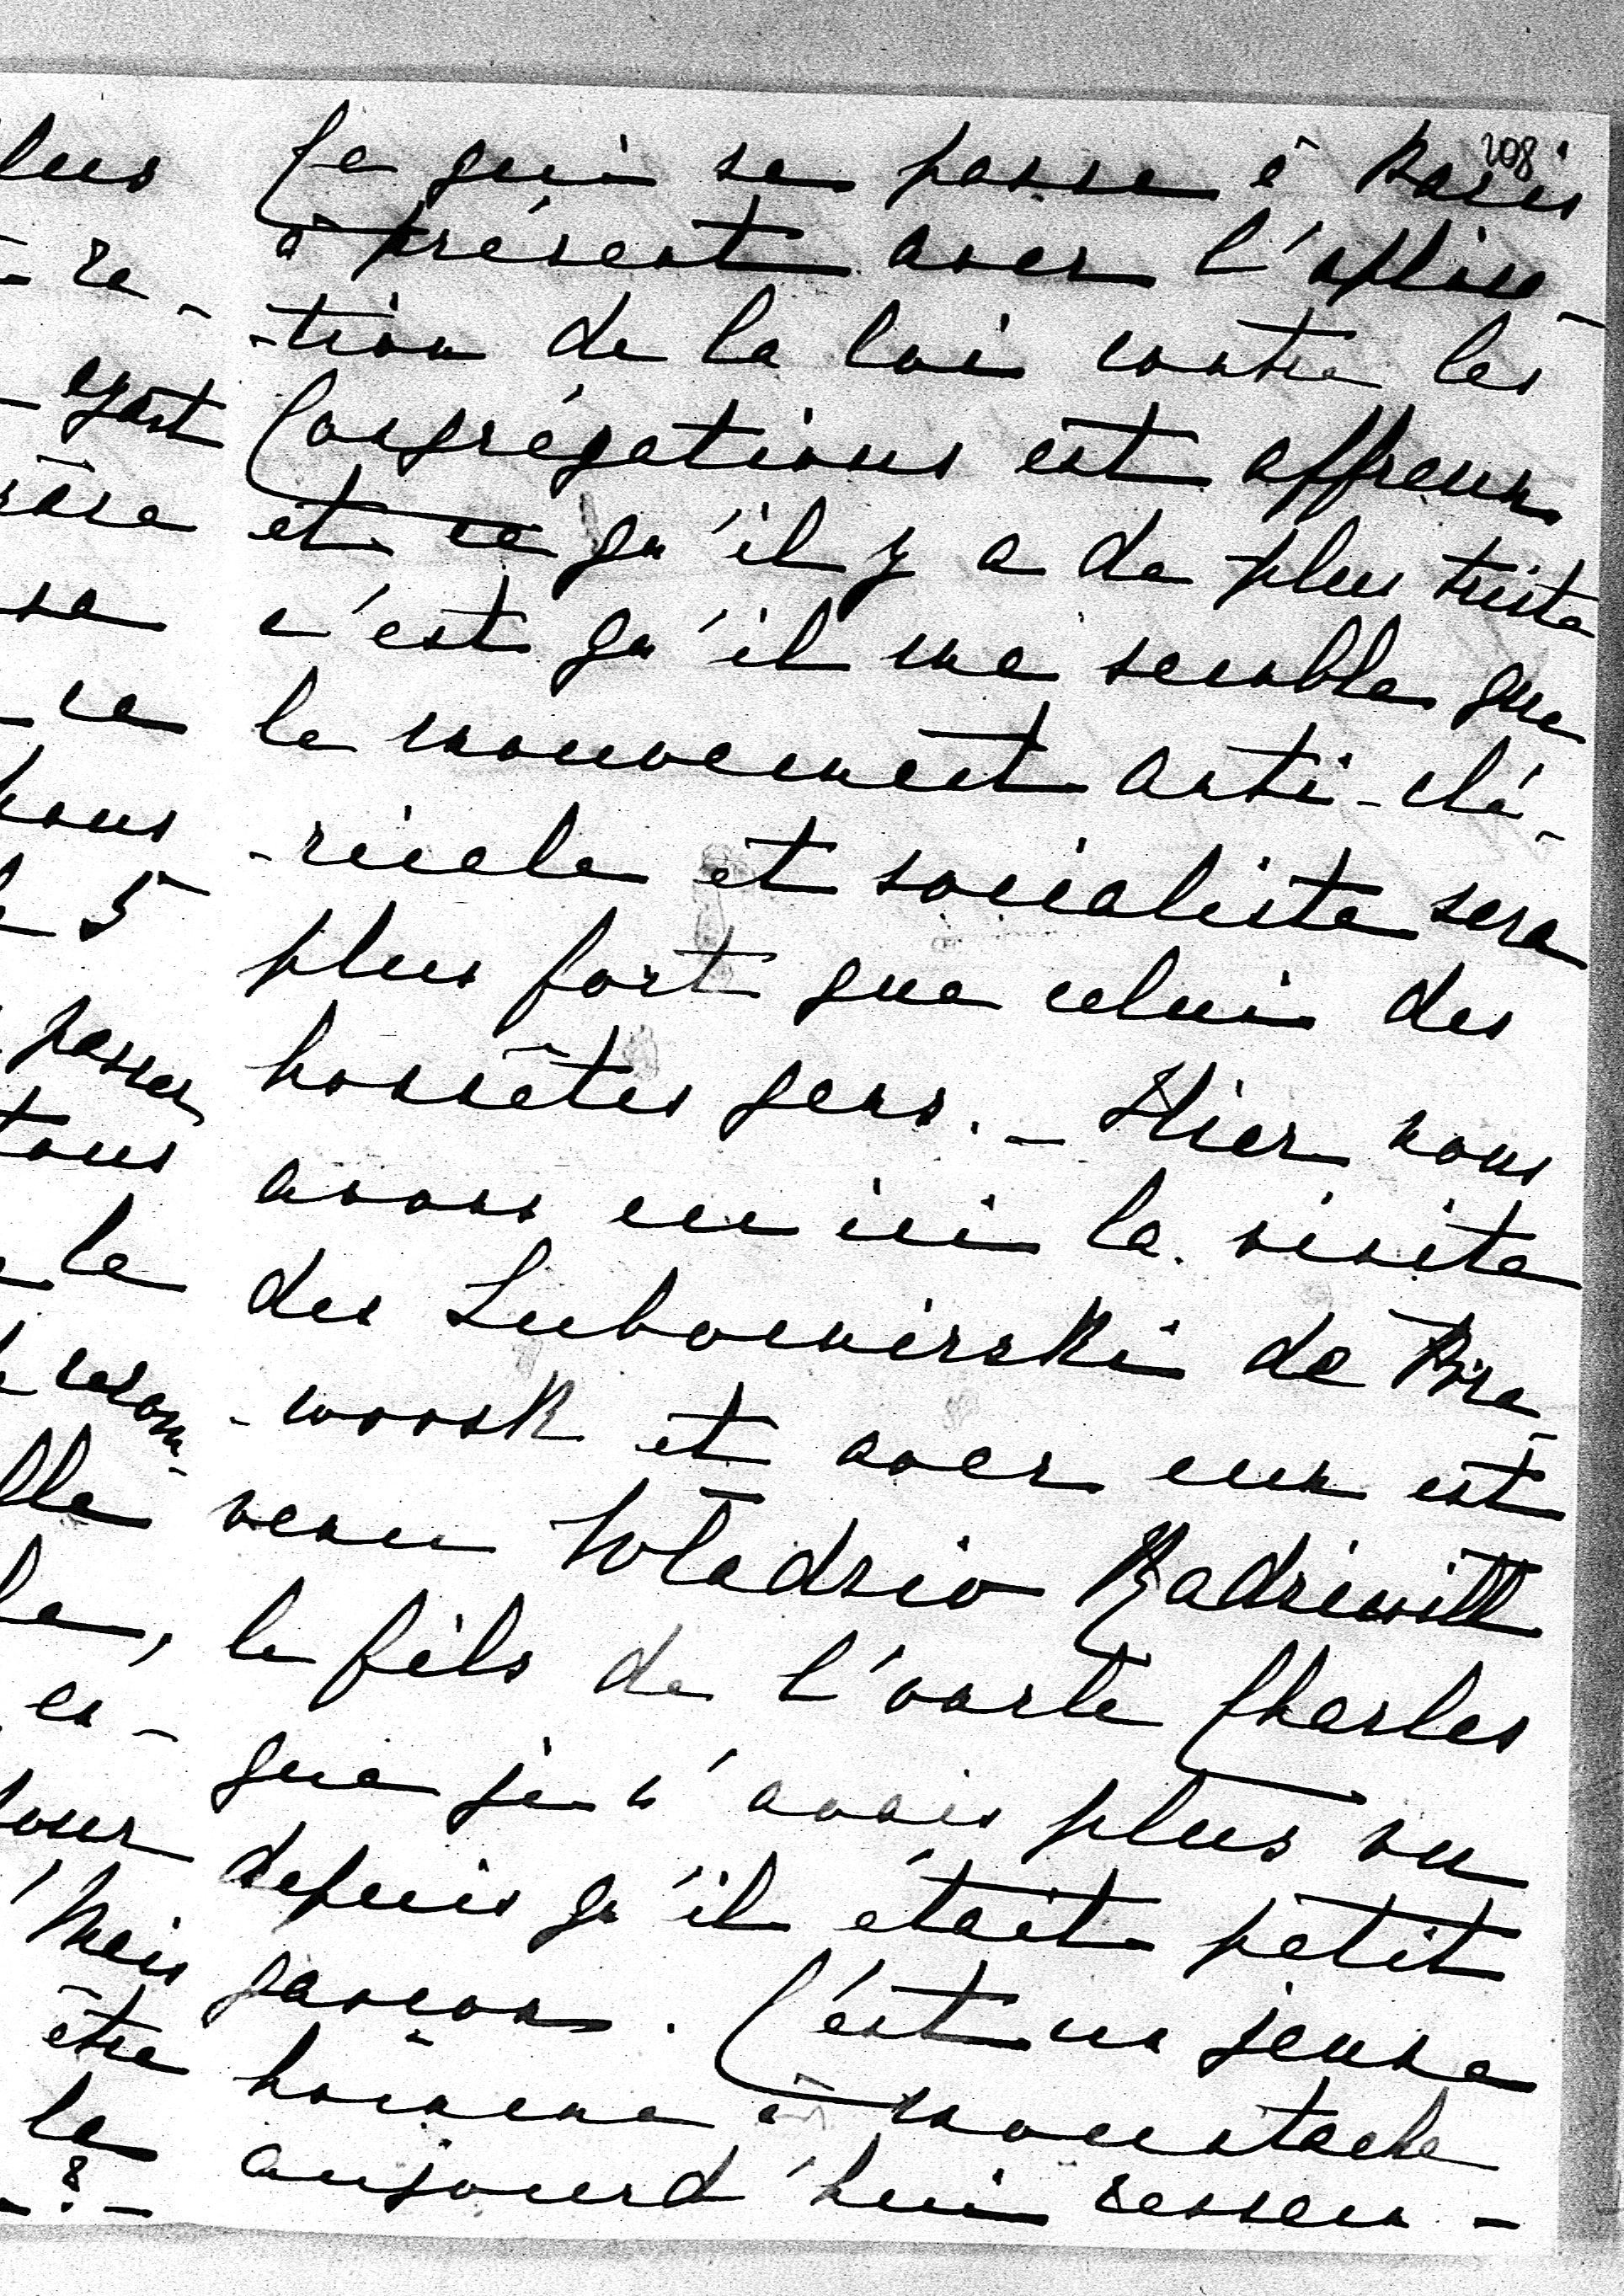 208
Ce qui se passe à Paris
à présent avec l'applica-
-tion de la loi contre les
Congrégations est affreux
et ce qu'il y a de plus triste
c'est qu'il me semble que
le mouvement anti-clé-
-ricale et socialiste sera
plus fort que celui des
honnêtes gens. - Hier nous
avons eu ici la visite
des Lubomirski de Kra-
-woosk et avec eux est
venu Wladzio Radziwill
le fils de l'oncle Charles
que je n'avais plus vu
depuis qu'il était petit
garçon. C'est un jeune
homme à moustache
aujourd'hui ressem-